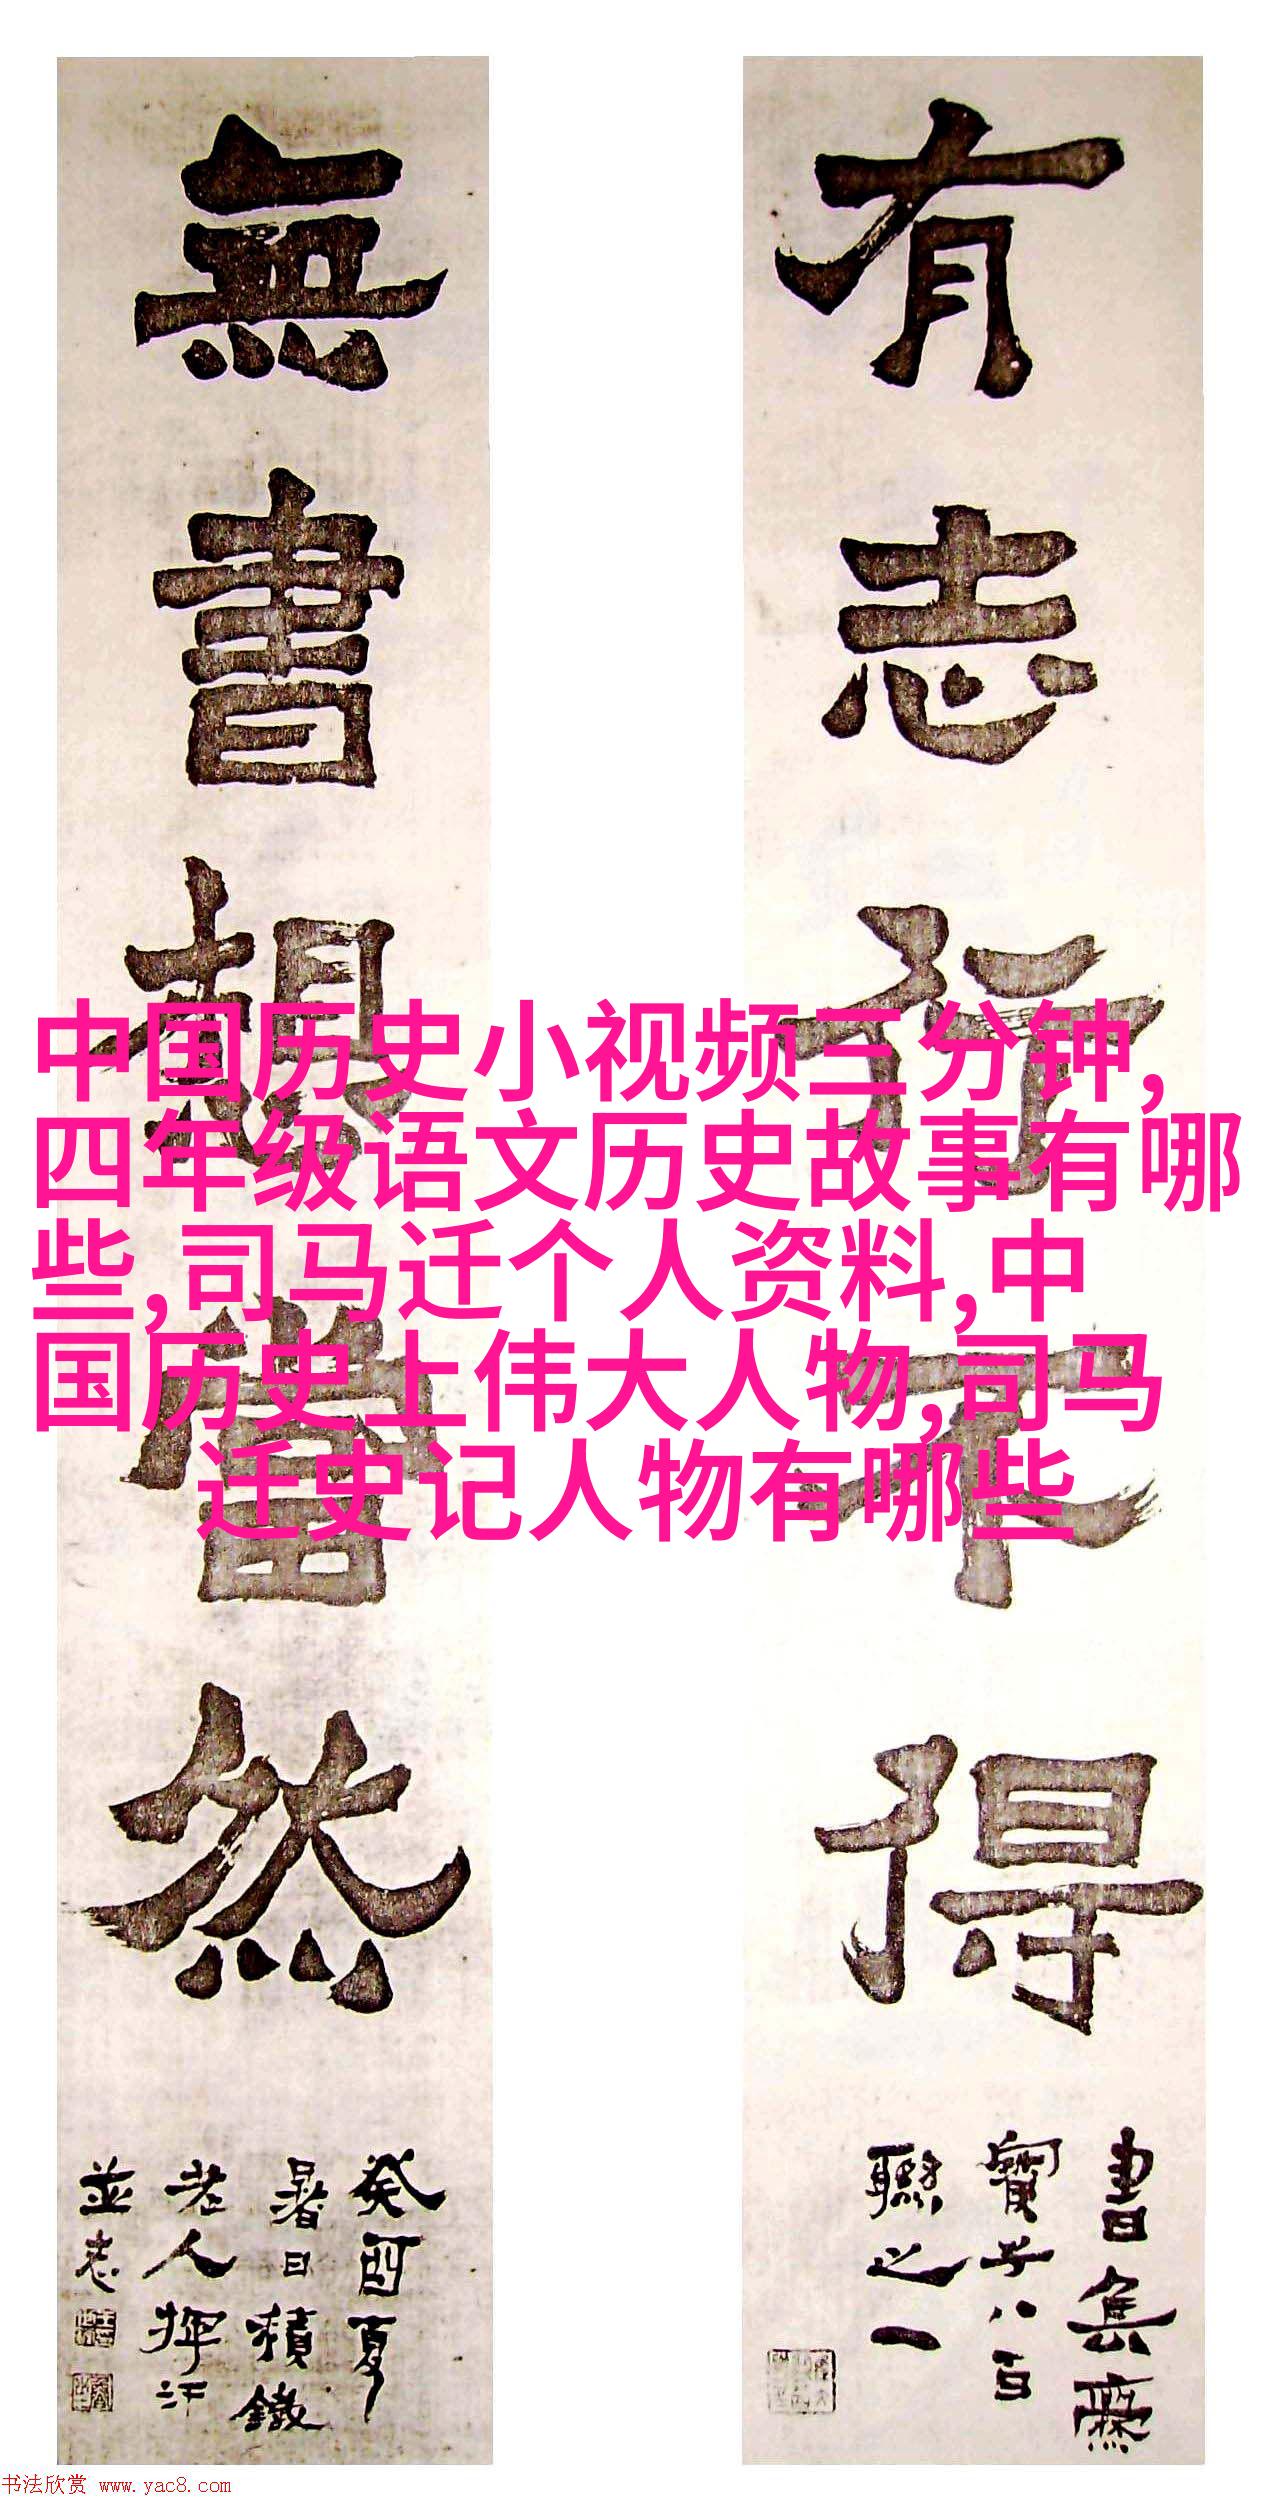 有志行不得
書奂廡
寶子八百
聯之一
無書想當然
癸酉夏
暑日積鐵
老人揮汗
並志
中国历史小视频三分钟,
四年级语文历史故事有哪
些,司马迁个人资料,中
国历史上伟大人物,司马
迁史记人物有哪些
书法欣赏 www.yac8.com